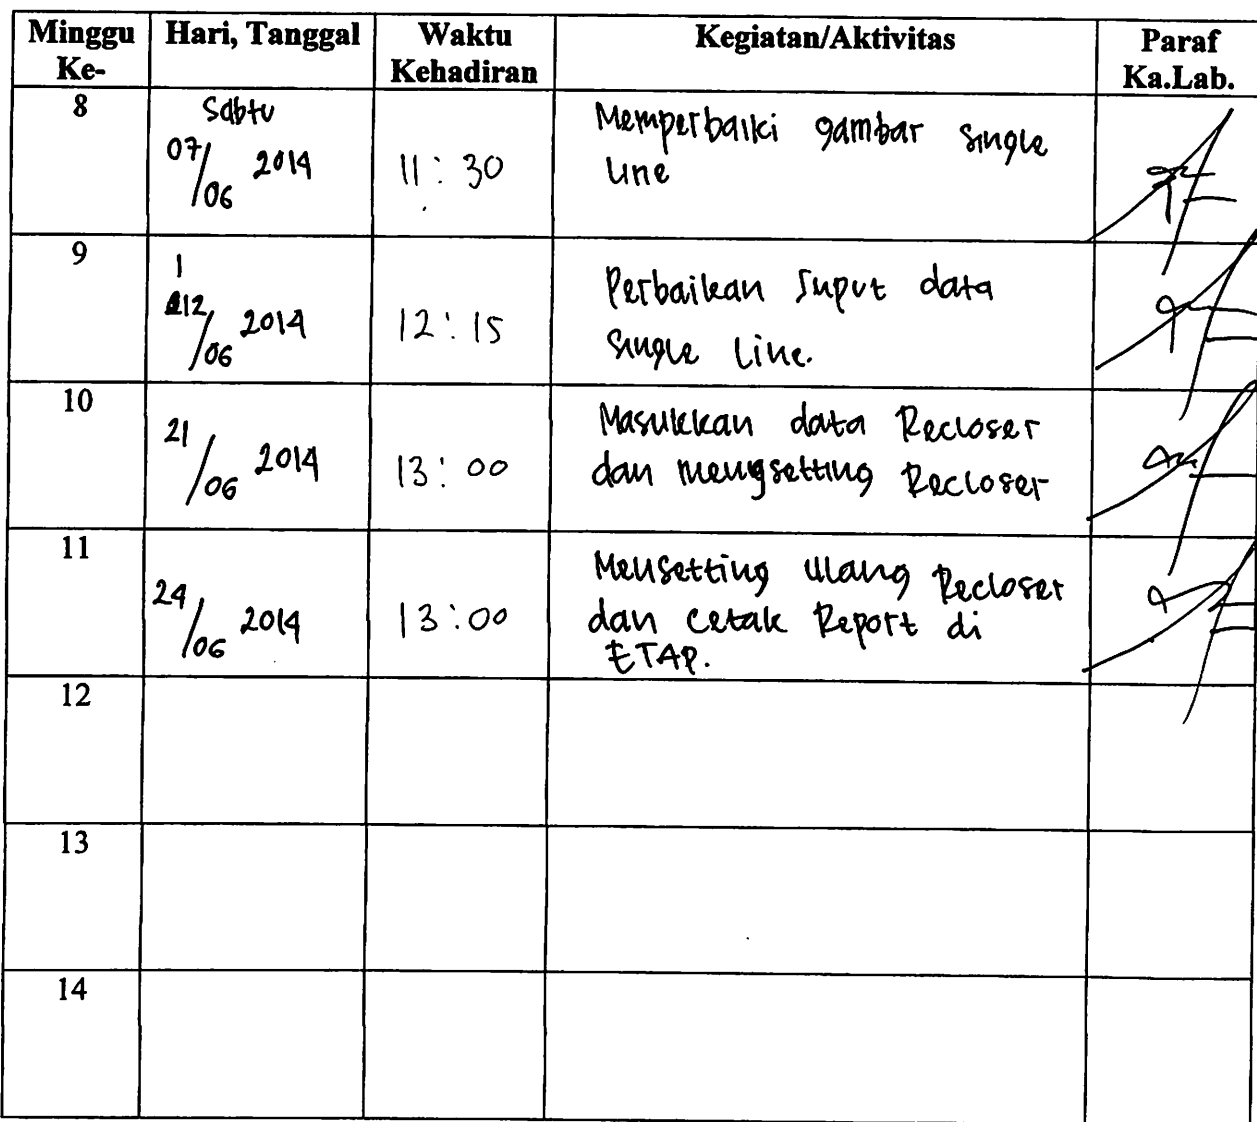 Minggu Ke- Hari, Tanggal Waktu Kehadiran Kegiatan/Aktivitas Paraf Ka.Lab.
8
Sabtu
07/06 2014
11:30
Memperbaiki gambar single
line
9
12/06 2014
12:15
Perbaikan Input data
single Line.
10
21/06 2014
13:00
Masukkan data Recloser
dan mengsetting Recloser
11
24/06 2014
13:00
Mensetting ulang Recloser
dan cetak Report di
ETAP.
12
13
14